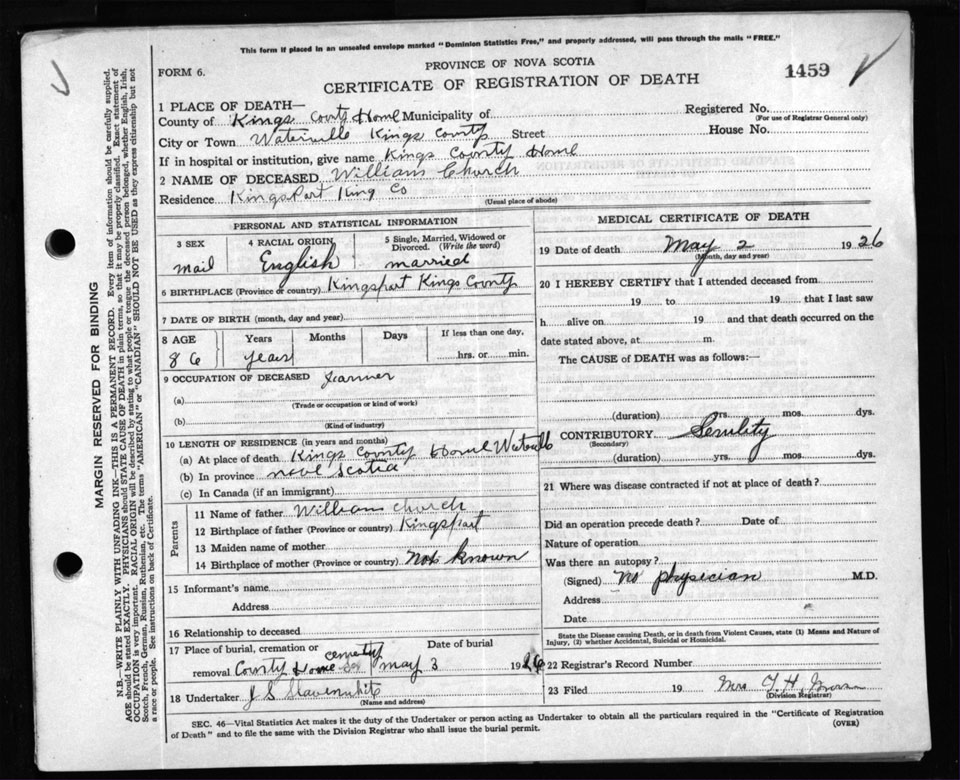 This form if placed in an unsealed envelope marked "Dominion Statistics Free," and properly addressed, will pass through the mails "FREE."
PROVINCE OF NOVA SCOTIA
FORM 6.
CERTIFICATE OF REGISTRATION OF DEATH
1459
1 PLACE OF DEATH—
County of Kings County Home Municipality of
Registered No.
(For use of Registrar General only)
City or Town Waterville Kings County Street
House No.
If in hospital or institution, give name Kings County Home
2 NAME OF DECEASED William Church
Residence Kingsport King Co
(Usual place of abode)
PERSONAL AND STATISTICAL INFORMATION
3 SEX
mail
4 RACIAL ORIGIN
English
5 Single, Married, Widowed or Divorced. (Write the word)
married
6 BIRTHPLACE (Province or country) Kingsport Kings County
7 DATE OF BIRTH (month, day and year)
8 AGE Years Months Days If less than one day,
86 years hrs. or min.
9 OCCUPATION OF DECEASED Farmer
(a)
(Trade or occupation or kind of work)
(b)
(Kind of industry)
10 LENGTH OF RESIDENCE (in years and months)
(a) At place of death Kings County Home
(b) In province nova Scotia
(c) In Canada (if an immigrant)
Parents
11 Name of father William church
12 Birthplace of father (Province or country) Kingsport
13 Maiden name of mother
14 Birthplace of mother (Province or country) not known
15 Informant's name
Address
16 Relationship to deceased
17 Place of burial, cremation or removal County Home cemetry
Date of burial
may 3 1926
18 Undertaker J S
(Name and address)
MEDICAL CERTIFICATE OF DEATH
19 Date of death May 2 1926
(Month, day and year)
20 I HEREBY CERTIFY that I attended deceased from
19 to 19 that I last saw
h alive on 19 and that death occurred on the
date stated above, at m.
The CAUSE of DEATH was as follows:—
(duration) yrs. mos. dys.
CONTRIBUTORY Senulity
(Secondary)
(duration) yrs. mos. dys.
21 Where was disease contracted if not at place of death?
Did an operation precede death? Date of
Nature of operation
Was there an autopsy?
(Signed) no physician M.D.
Address
Date
State the Disease causing Death, or in death from Violent Causes, state (1) Means and Nature of
Injury, (2) whether Accidental, Suicidal or Homicidal.
22 Registrar's Record Number
23 Filed 19 Mrs T. H.
(Division Registrar)
SEC. 46—Vital Statistics Act makes it the duty of the Undertaker or person acting as Undertaker to obtain all the particulars required in the "Certificate of Registration
of Death" and to file the same with the Division Registrar who shall issue the burial permit.
(OVER)
MARGIN RESERVED FOR BINDING
N.B.—WRITE PLAINLY WITH UNFADING INK—THIS IS A PERMANENT RECORD. Every item of information should be carefully supplied.
AGE should be stated EXACTLY. PHYSICIANS should STATE CAUSE OF DEATH in plain terms, so that it may be properly classified. Exact statement of
OCCUPATION is very important. RACIAL ORIGIN will be described by stating to what people or tongue the deceased person belonged, whether English, Irish,
Scotch, French, German, Russian, Ruthenian, etc. The terms "AMERICAN" or "CANADIAN" SHOULD NOT BE USED as they express citizenship but not
a race or people. See instructions on back of Certificate.